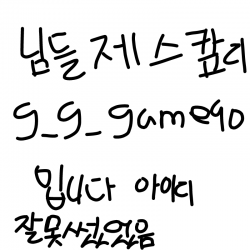 님들 제
g_g_game90
입니다 아이디
잘못썼었음